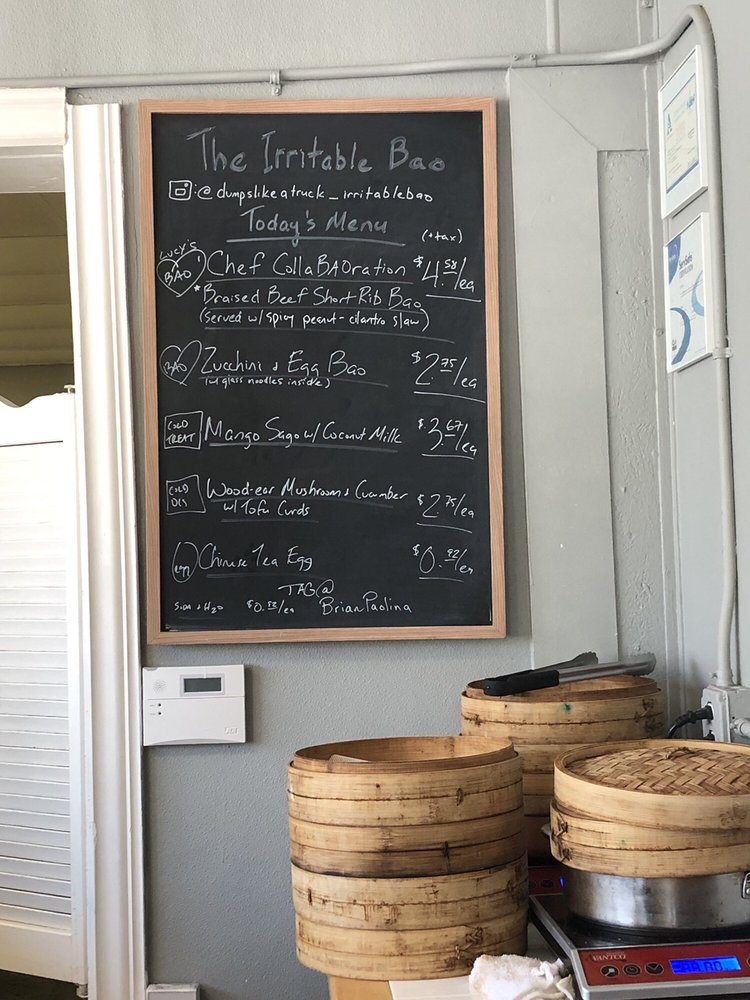 The Irritable Bao
:@dumpslikeatruck_irritablebao
Today's Menu
(+tax)
Lucy's
BAO
Chef CollaBAOration $4.58/ea
*Braised Beef Short Rib Bao
(served w/ spicy peanut-cilantro slaw)
BAO
Zucchini + Egg Bao $2.75/ea
(w/ glass noodles inside)
COLD TREAT
Mango Sago w/ Coconut Milk $3.67/ea
COLD
Wood-ear Mushroom + Cucumber
w/ Tofu Curds $2.75/ea
Egg
Chinese Tea Egg $0.92/ea
TAG@
BrianPaolina
Soda + H2O $0.92/ea
VANTCO